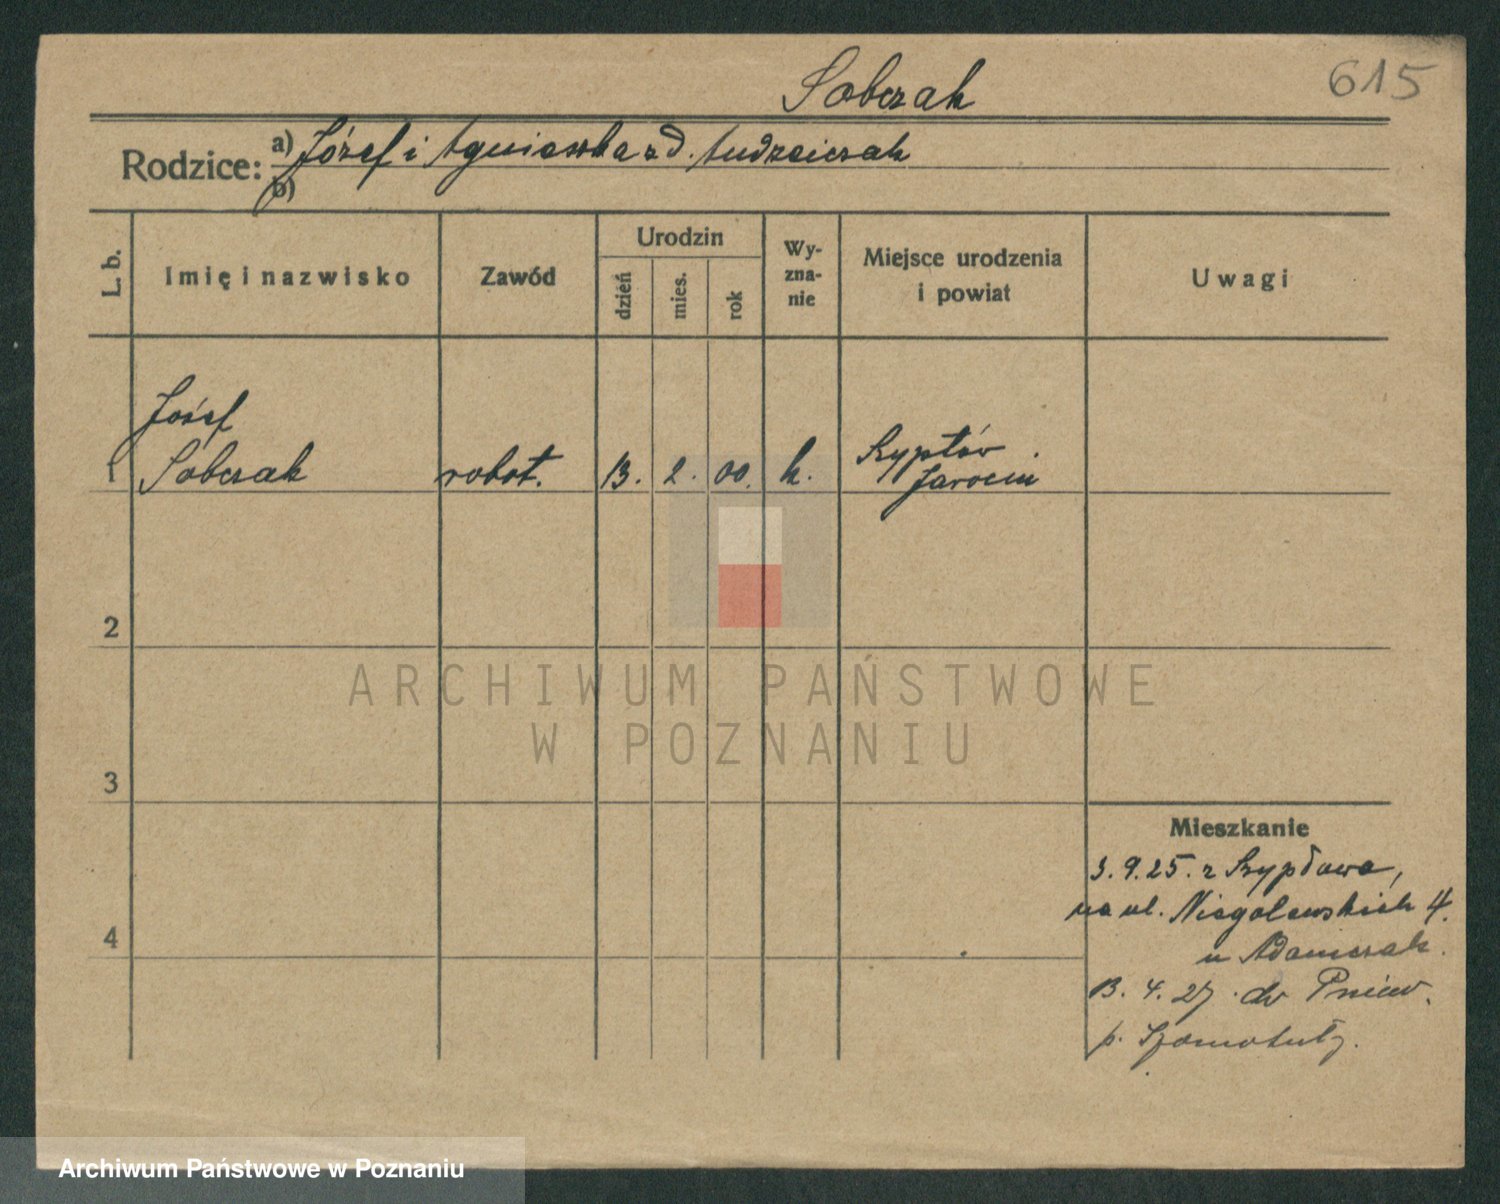 Sobczak
615
Rodzice:
a) Józef i Agnieszka z d. Andrzejczak
b)
L. b.
Imię i nazwisko
Zawód
Urodzin
dzień
mies.
rok
Wy-
zna-
nie
Miejsce urodzenia
i powiat
Uwagi
Józef
1 Sobczak robot. 13. 2. 00. k. Szypłów
Jarocin
2
3
4
ARCHIWUM PAŃSTWOWE
W POZNANIU
Mieszkanie
3.9.25. z Szypłowa,
na ul. Niegolewskich 4.
u Adamczak.
13. 4. 27. do Pniew.
p. Szamotuły.
Archiwum Państwowe w Poznaniu